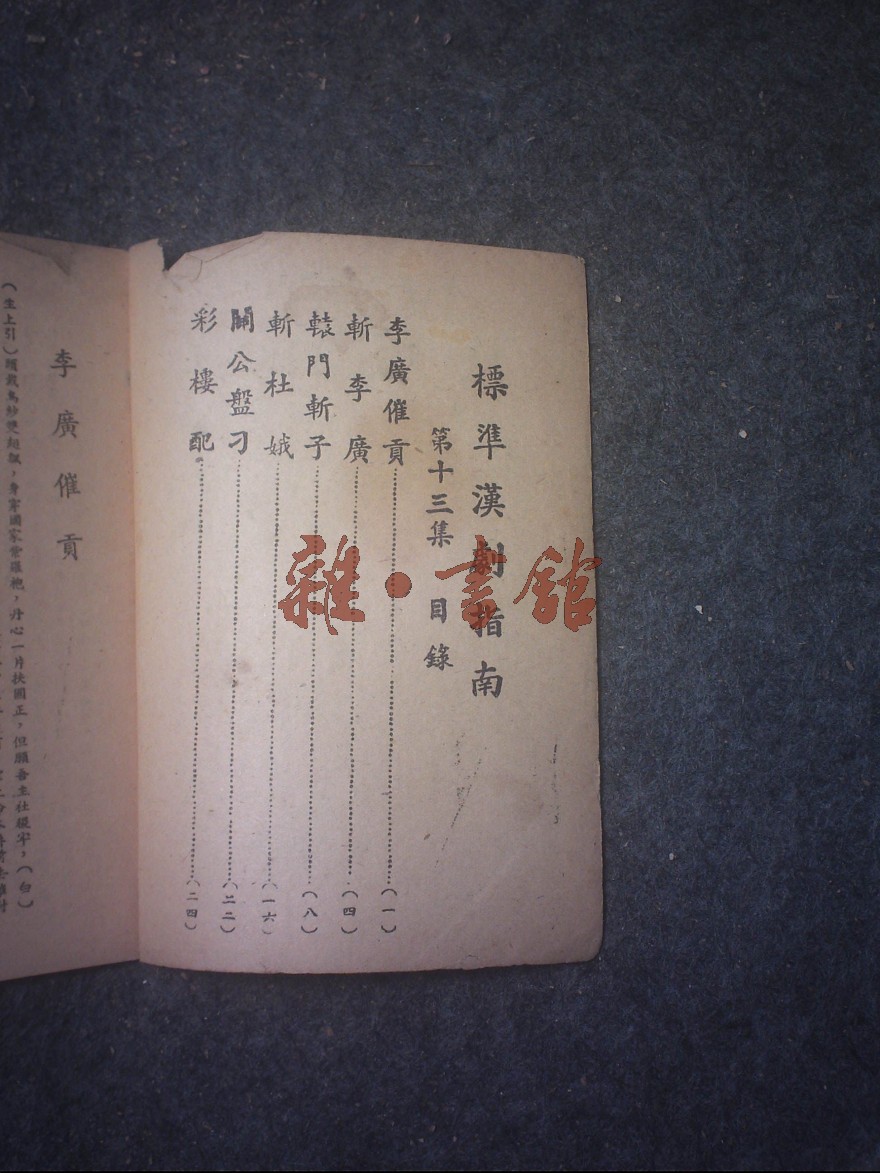 標準漢劇指南
第十三集 目錄
李廣催貢……(一)
斬李廣……(四)
轅門斬子……(八)
斬杜娥……(一六)
關公盤刁……(二二)
彩樓配……(二四)
李廣催貢
(生上引)頭戴烏紗雙翅飄,身穿國家紫羅袍,丹心一片扶國正,但願吾主社稷牢,(白)
雜·書館